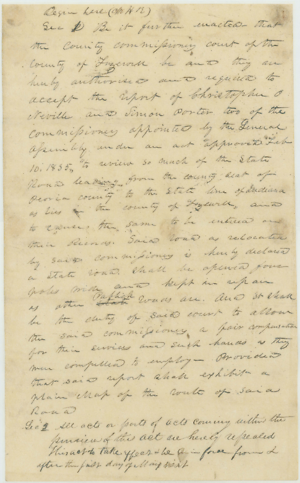 Sec 1 Be it further enacted that
the county commissioners court of the
County of be and they are
hereby authorised and required to
accept the report of Christopher
Neville and Simon Porter two of the
commissioners appointed by the General
Assembly under an act approved Feb
10. 1835, to review so much of the State
Road leading from the county seat of
Peoria county to the State line of Indiana
as lies the county of and
to cause the same to be entered on
their Records. Said road as relocated
by said commissioners is hereby declared
a state road shall be opened four
poles wide and kept in repair
as other public roads are. And it shall
be the duty of said court to allow
the said commissioners a fair compensation
for their services and such hands as they
were compelled to employ Provided
that said report shall exhibit a
plain Map of the route of said
Road
Sec 2 All acts or parts of acts coming within the
purview of this act are hereby repealed
This act to take effect & be in force from &
after the first day of May next